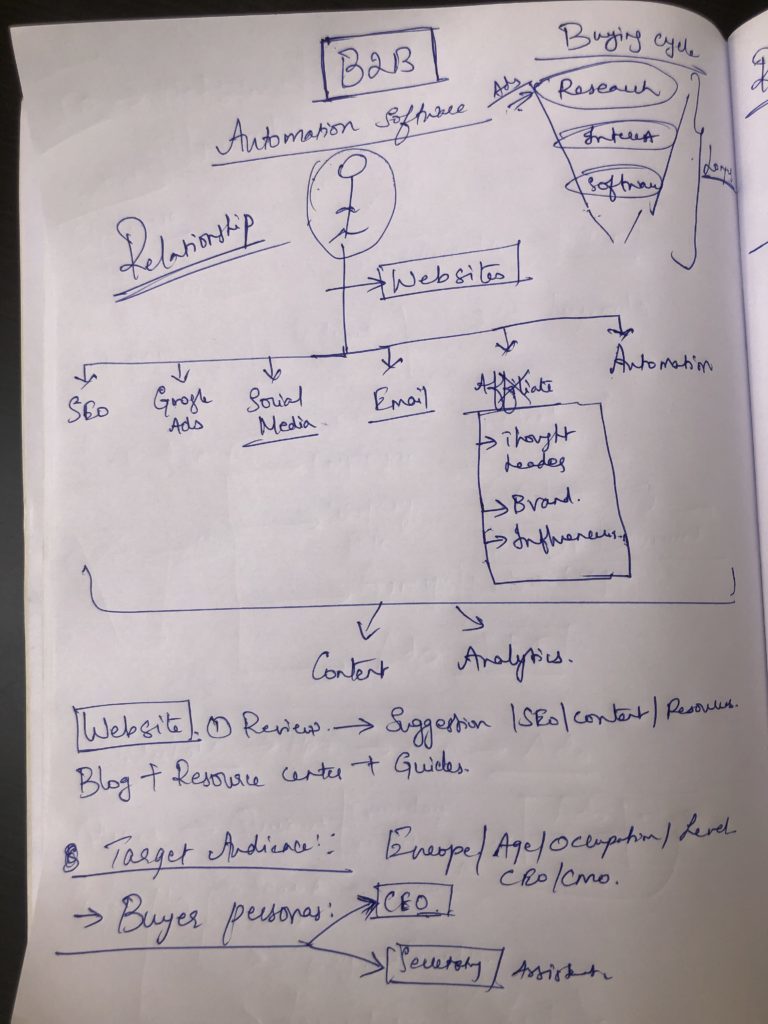 B2B
Buying cycle
Automation Software
Ads
Research
Interest
Software
Long
Relationship
Websites
SEO
Google Ads
Social Media
Email
Affiliate
Automation
→ Thought Leader
→ Brand.
→ Influencers.
Content
Analytics.
Website. ① Review. → Suggestion /SEO/Content/Resources.
Blog + Resource center + Guides.
Target Audience:
Europe/Age/Occupation/Level
CEO/CMO.
→ Buyer personas:
CEO.
Secretary Assistant.